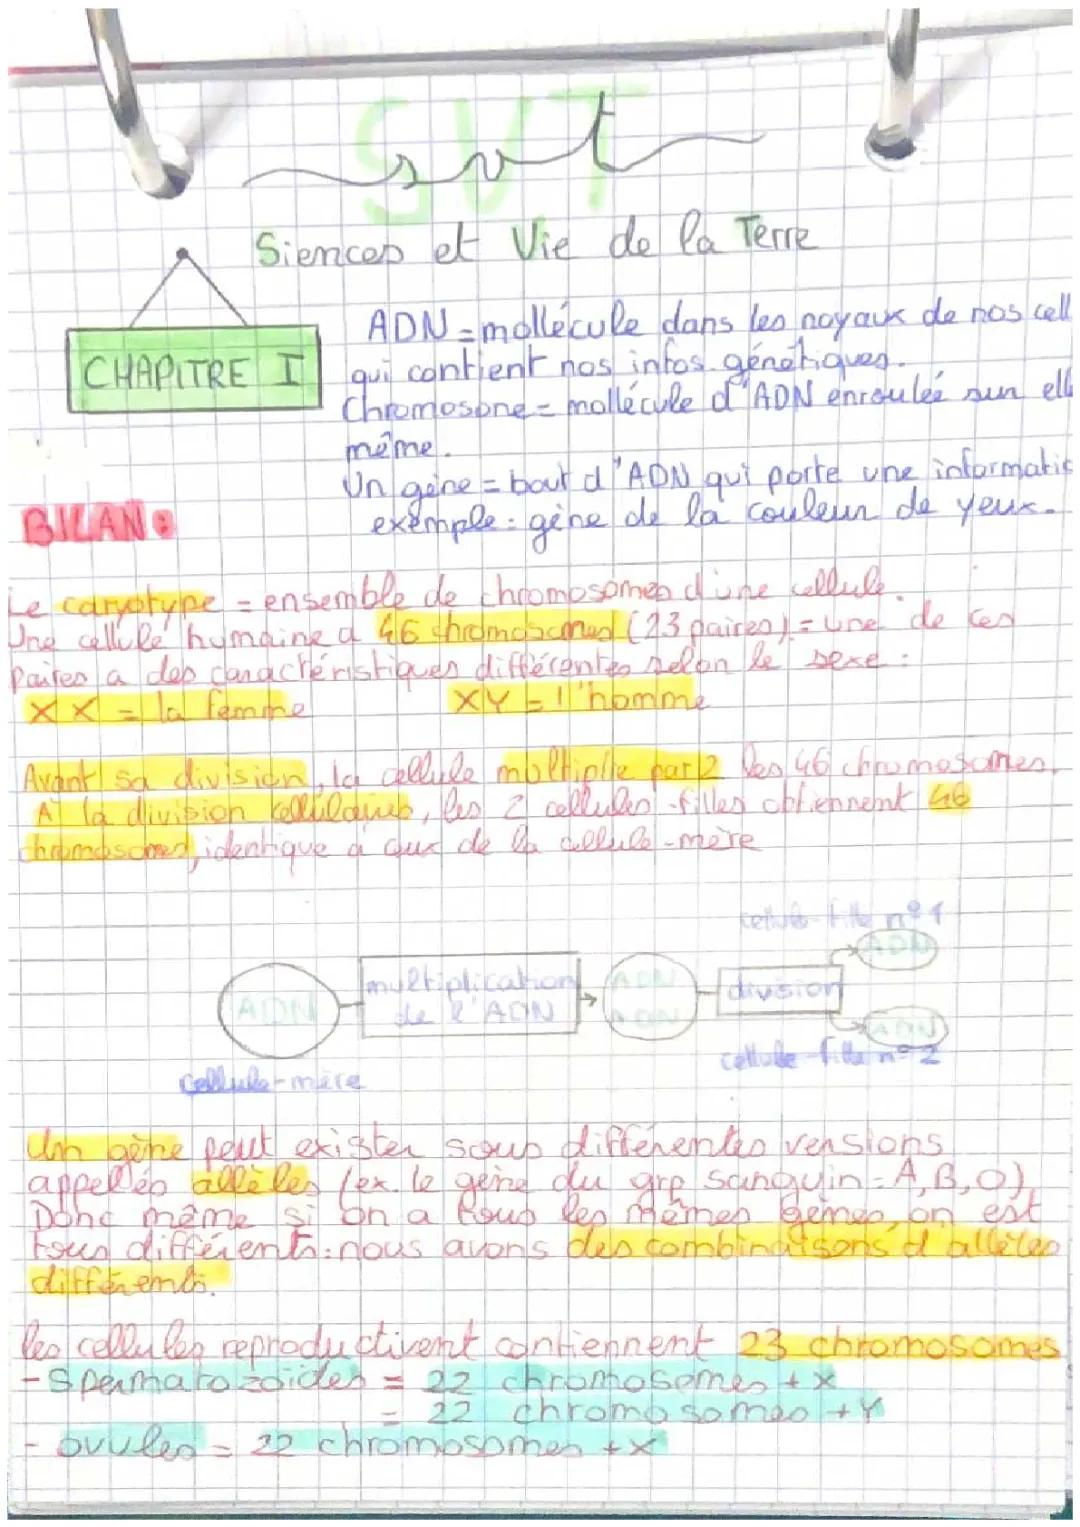 SVT
svt
Siences et Vie de la Terre
CHAPITRE I
ADN = mollécule dans les noyaux de nos cell
qui contient nos infos génétiques.
Chromosone = mollécule d'ADN enroulée sur elle
même.
Un gène = bout d'ADN qui porte une informatio
exemple : gène de la couleur de yeux.
BILAN :
Le caryotype = ensemble de chromosomes d'une cellule.
Une cellule humaine a 46 chromosomes (23 paires) = une de ces
paires a des caractéristiques différentes selon le sexe :
XX = la femme XY = l'homme
Avant sa division, la cellule multiplie par 2 les 46 chromosomes.
A la division cellulaires, les 2 cellules-filles obtiennent 46
chromosomes, identique à ceux de la cellule-mère
cellule-fille n°1
ADN
multiplication ADN division
ADN de l'ADN ADN
ADN
cellule-fille n°2
cellule-mère
Un gène peut exister sous différentes versions
appellés allèles (ex. le gène du grp sanguin = A, B, O)
Donc même si on a tous les mêmes gènes, on est
tous différents : nous avons des combinaisons d'allèles
différents.
les cellules reproductivent contiennent 23 chromosomes
- Spermatozoïdes = 22 chromosomes + X
= 22 chromosomes + Y
- ovules = 22 chromosomes + X